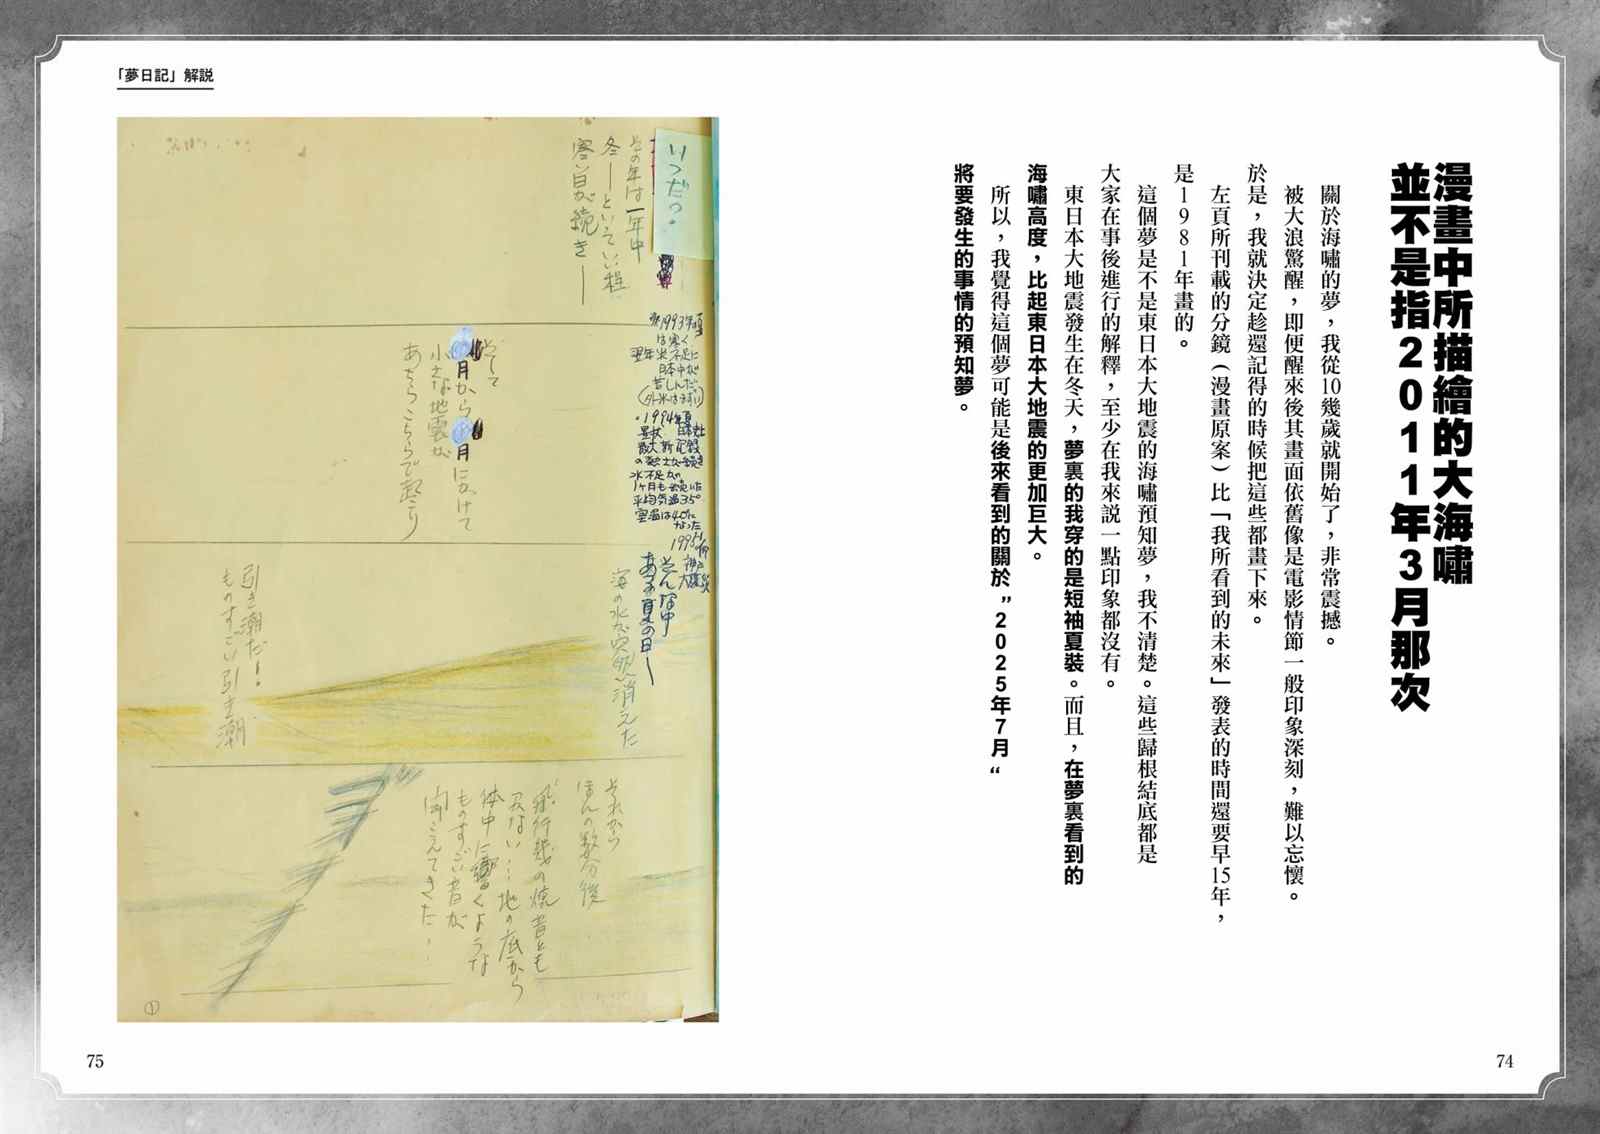 漫畫中所描繪的大海嘯
並不是指2011年3月那次
關於海嘯的夢，我從10幾歲就開始了，非常震撼。
被大浪驚醒，即便醒來後其畫面依舊像是電影情節一般印象深刻，難以忘懷。
於是，我就決定趁還記得的時候把這些都畫下來。
左頁所刊載的分鏡（漫畫原案）比「我所看到的未來」發表的時間還要早15年，
是1981年畫的。
這個夢是不是東日本大地震的海嘯預知夢，我不清楚。這些歸根結底都是
大家在事後進行的解釋，至少在我來說一點印象都沒有。
東日本大地震發生在冬天，夢裏的我穿的是短袖夏裝。而且，在夢裏看到的
海嘯高度，比起東日本大地震的更加巨大。
所以，我覺得這個夢可能是後來看到的關於”2025年7月“
將要發生的事情的預知夢。
74
「夢日記」解説
いつだっ?
その年は一年中
冬—といってい程
寒い日が続き—
※1993年夏
は寒く
翌年米不足に
日本中が
苦しんだ
(外米はまずい)
・1994年夏
最大新記録
水不足が
1ヶ月も続いた
平均気温35°
室温は40°に
なった
1995年
神戸
大震災
そして
月から
月にかけて
小さな地震が
あちらこちらで起こり
そんな中
ある夏の日—
海の水が突然消えた
引き潮だ!
ものすごい引き潮
それから
ほんの数分後
飛行機の爆音とも
つかない…地の底から
体中に響くような
ものすごい音が
聞こえてきた…
①
75